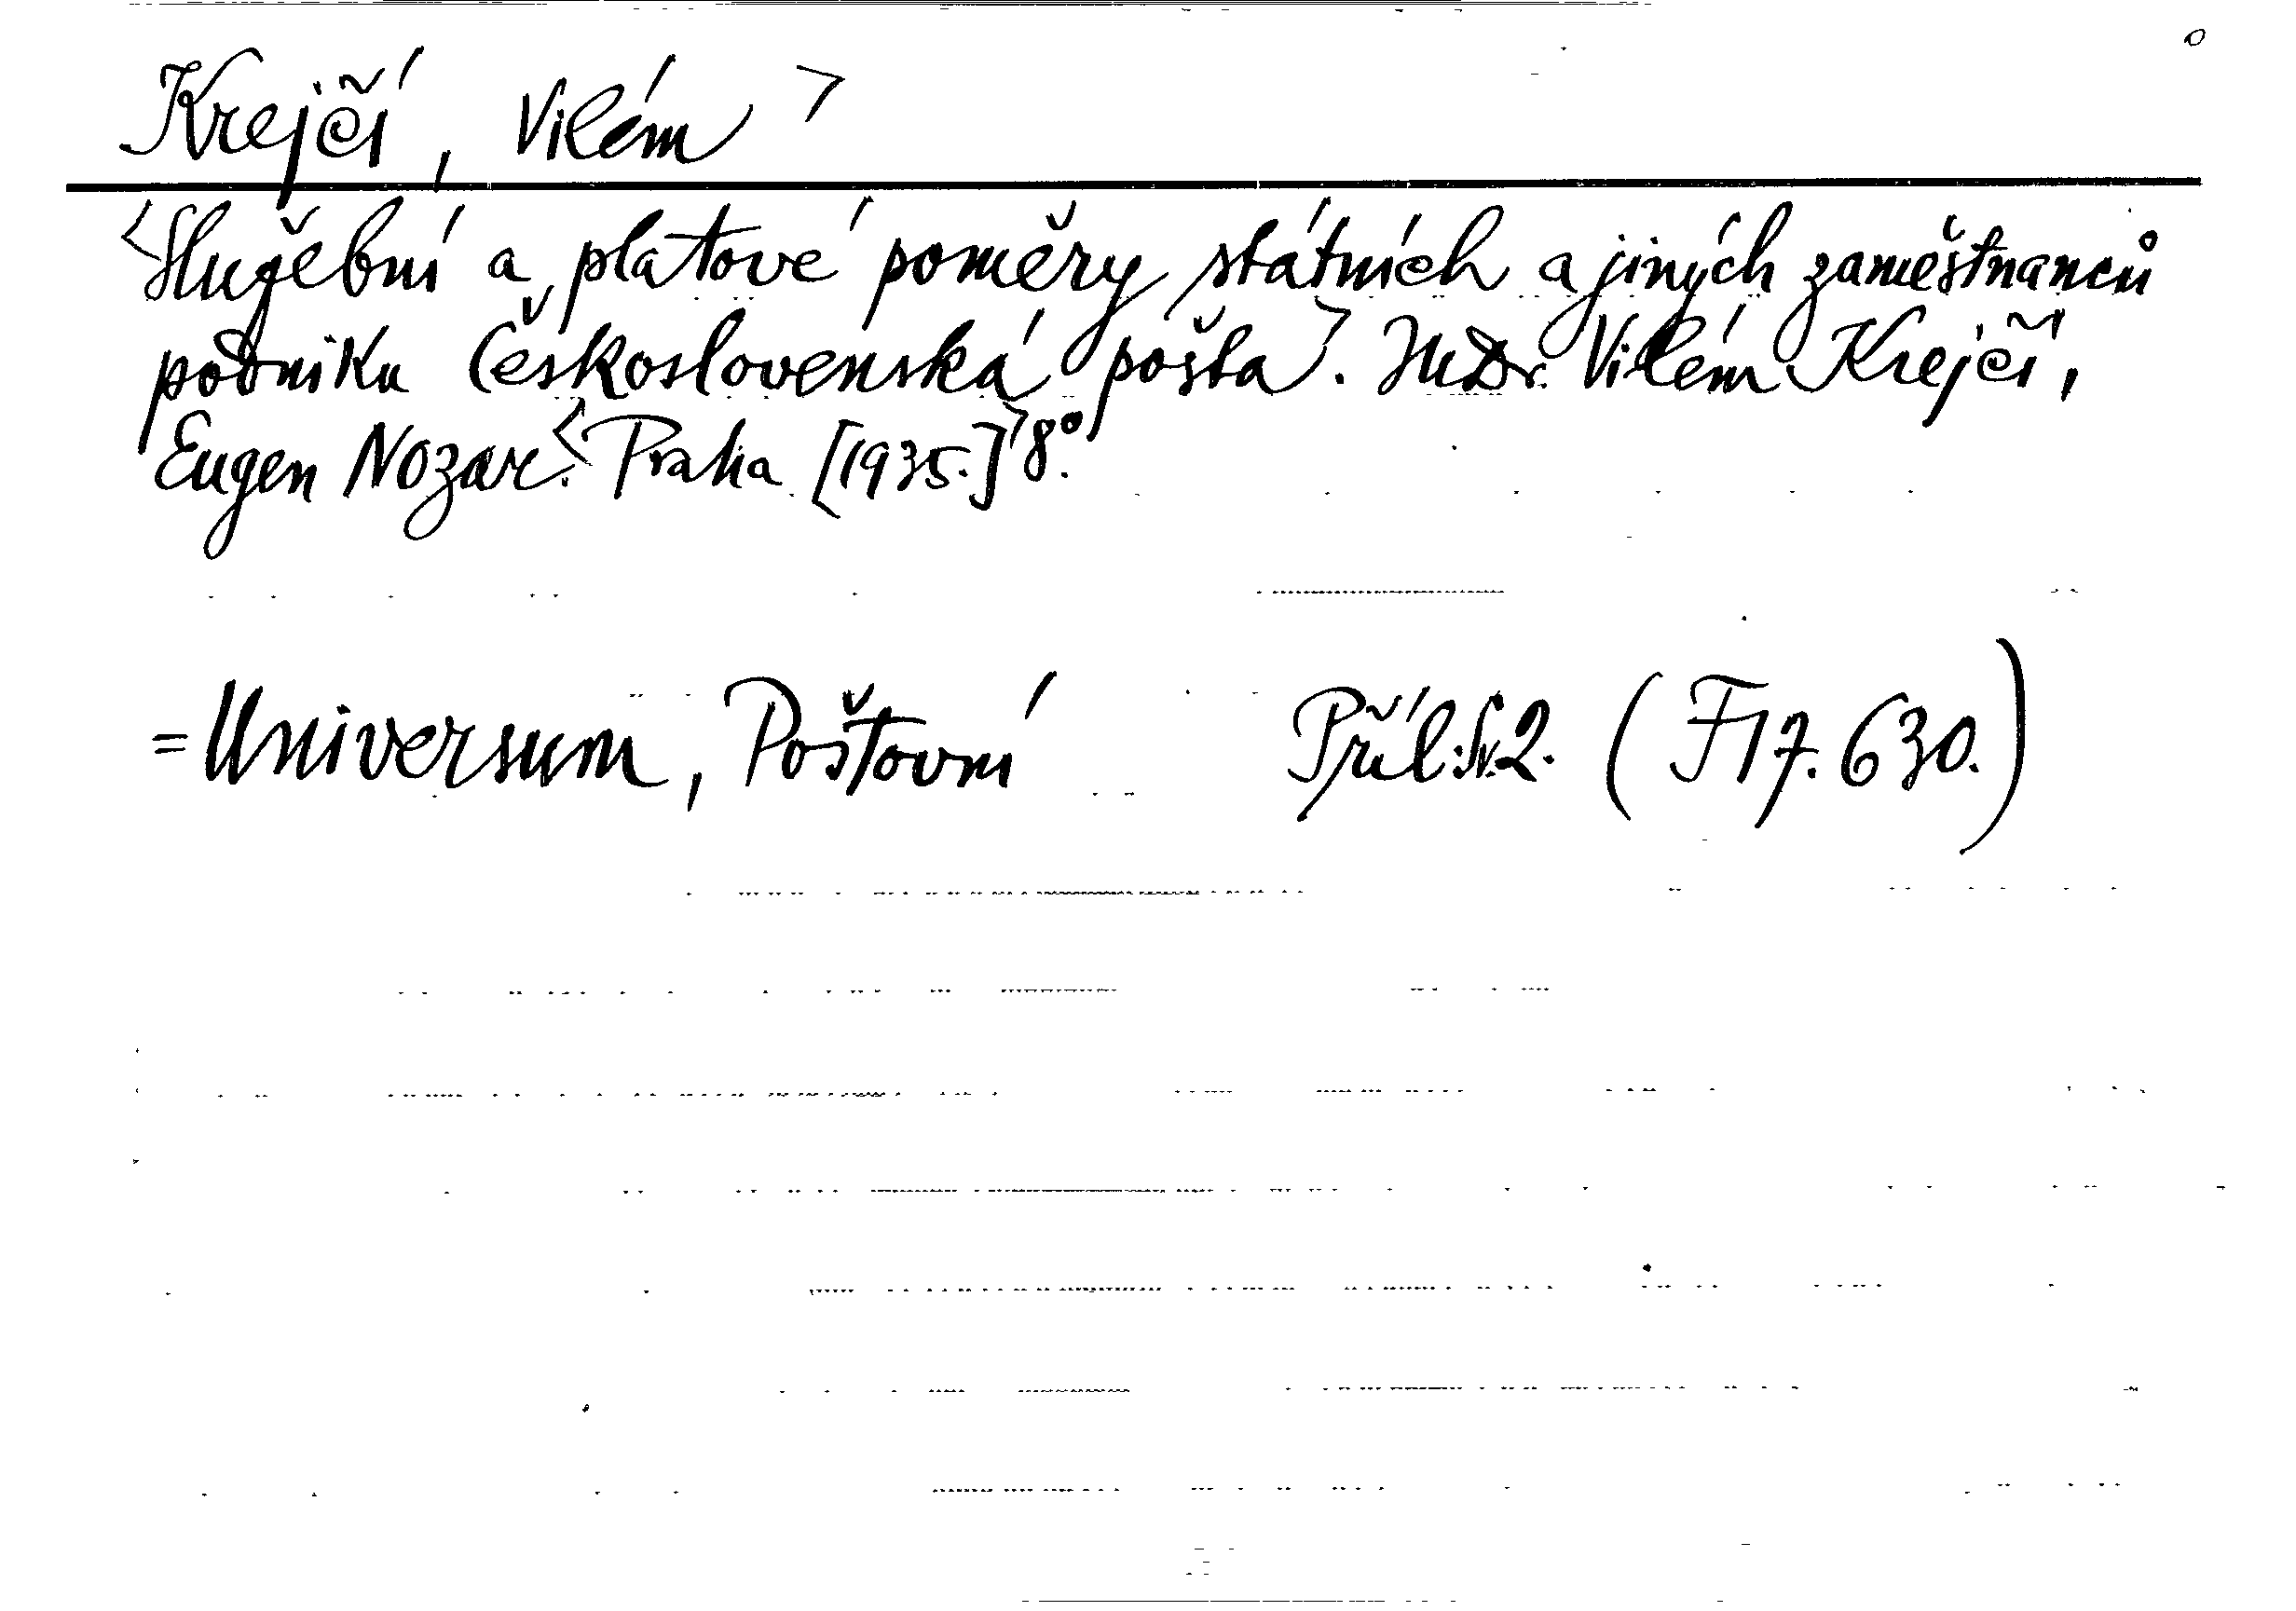 Krejčí, Vilém >
<Služební a platové poměry státních a jiných zaměstnanců
podniku Československá pošta>. JUDr. Vilém Krejčí,
Eugen Nozar. <Praha [1935.]> 8°.
=Universum, Poštovní Příl. Sv. 2. (F 17.630.)